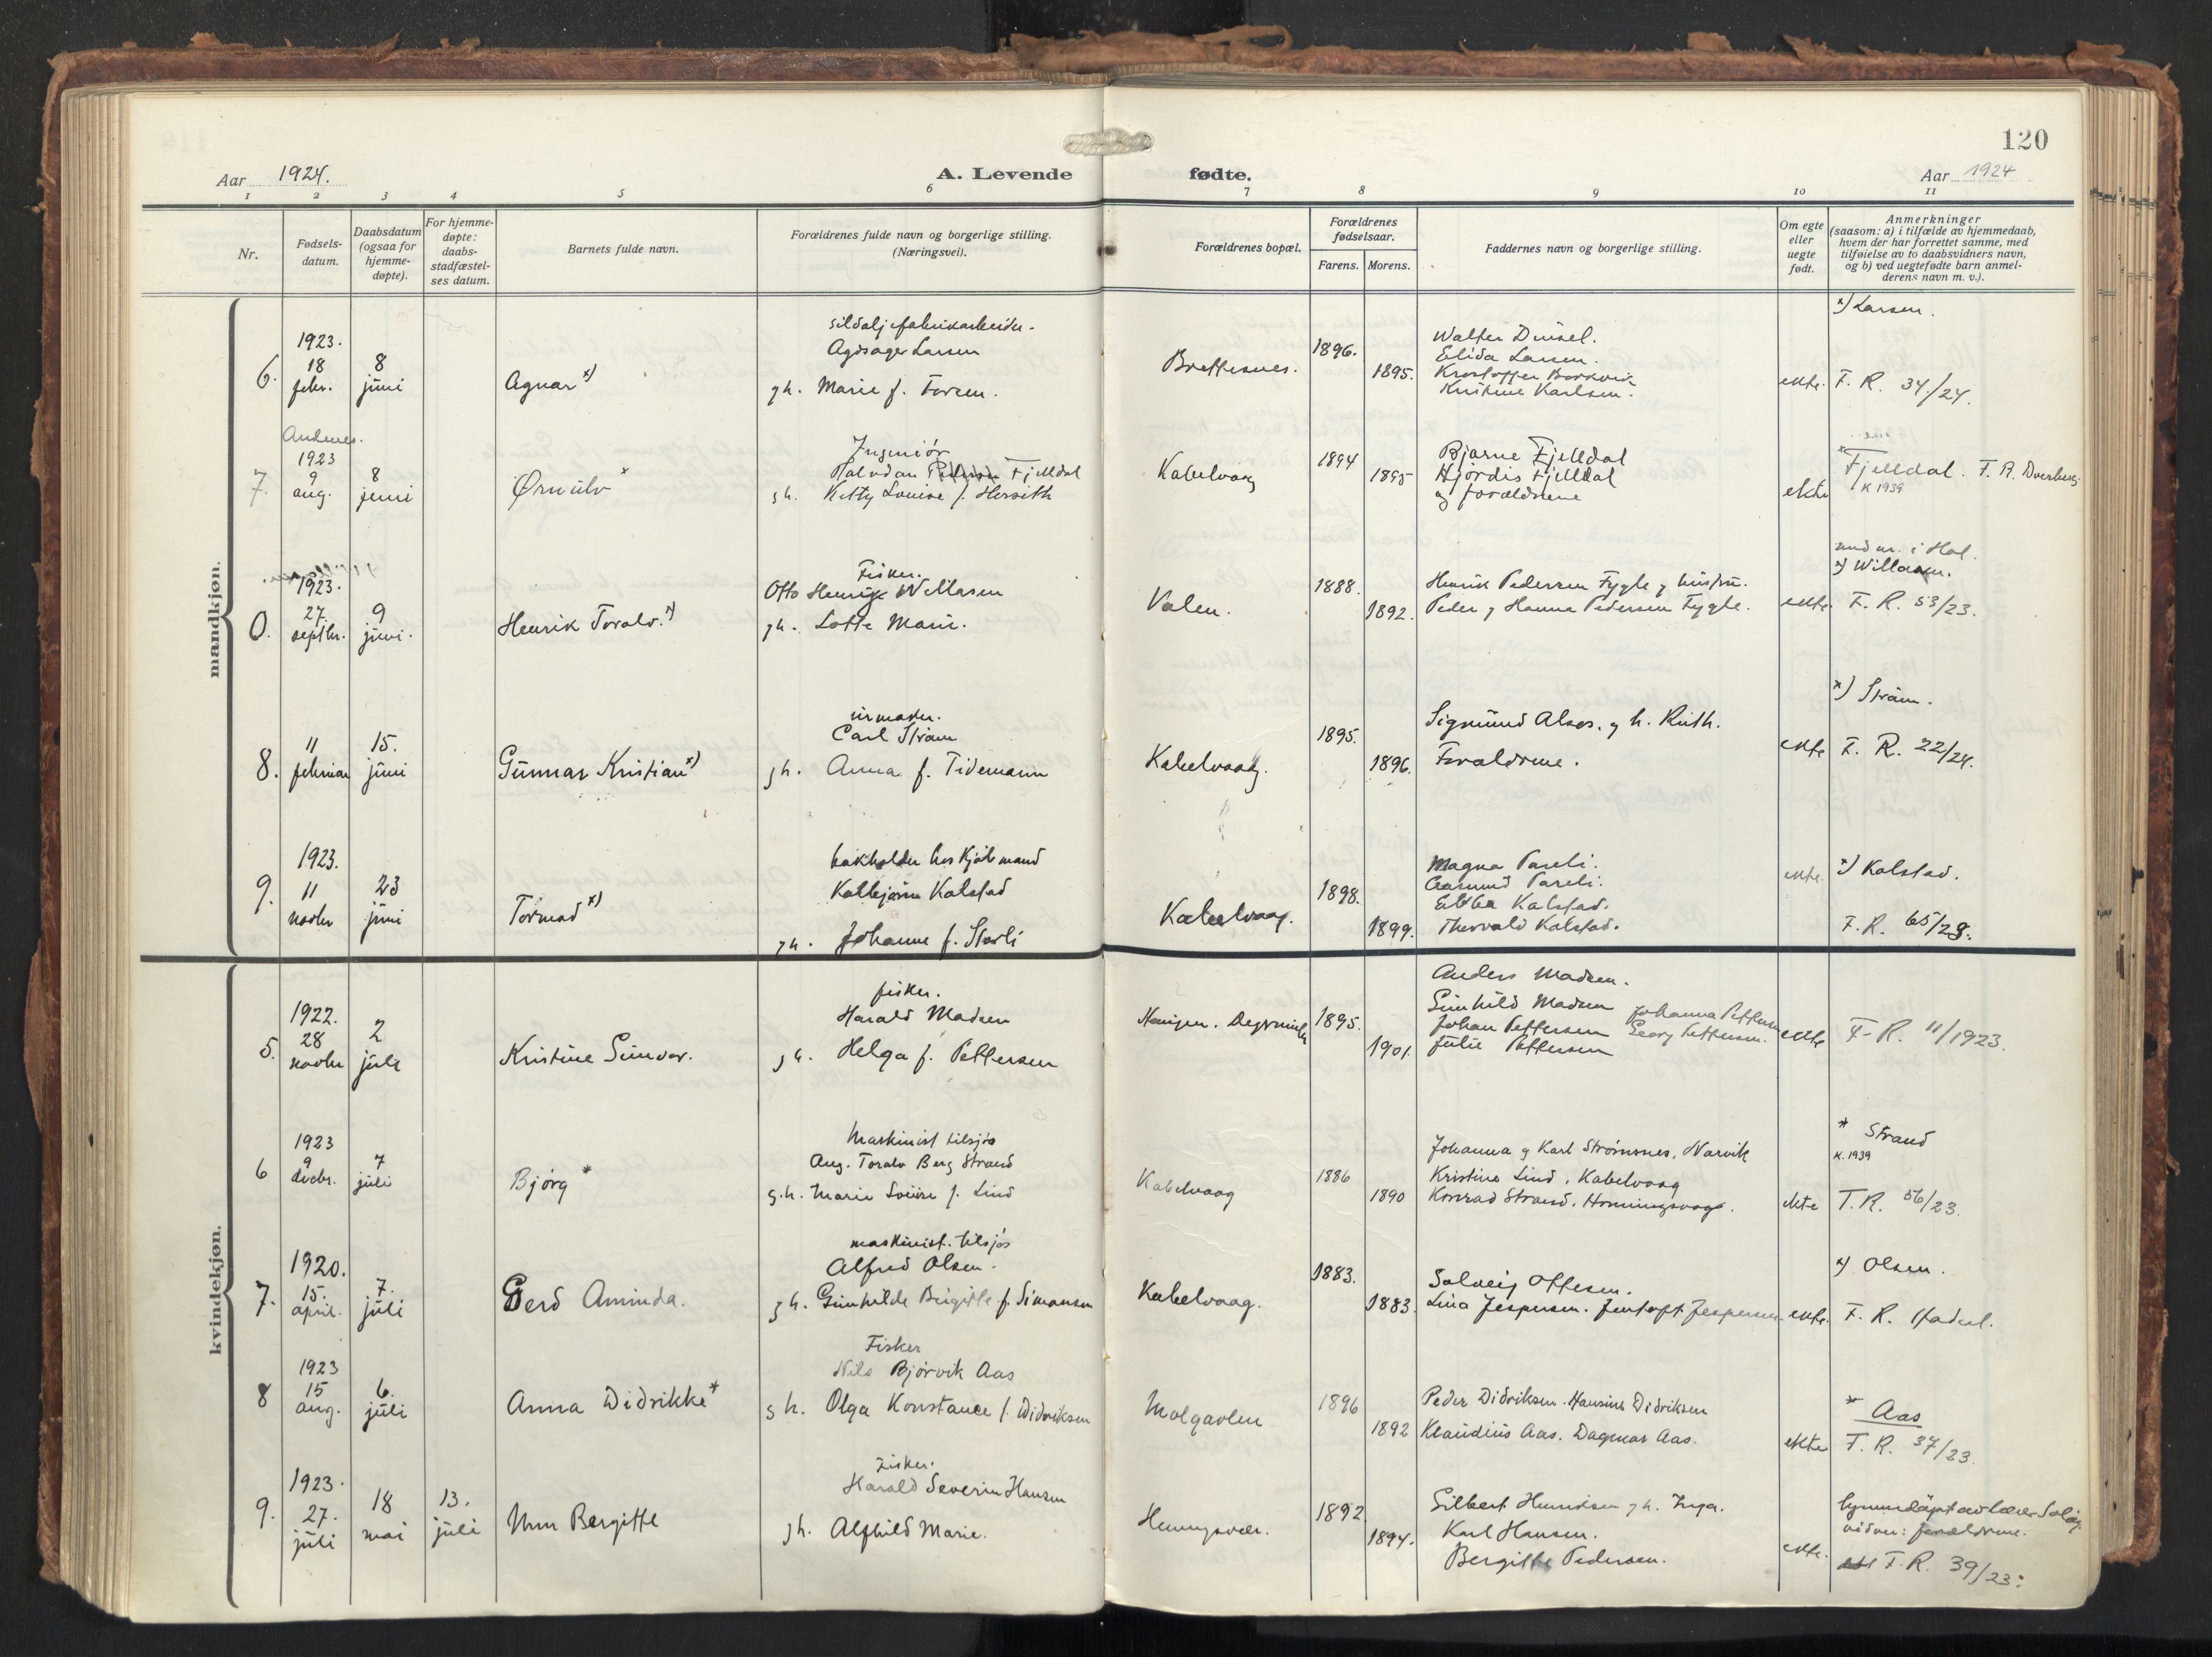 120
Aar 1924.
A. Levende fødte.
Aar 1924
1 2 3 4 5 6 7 8 9 10 11
Nr.
Fødsels-
datum.
Daabsdatum
(ogsaa for
hjemme-
døpte).
For hjemme-
døpte:
daabs-
stadfæstel-
ses datum.
Barnets fulde navn.
Forældrenes fulde navn og borgerlige stilling.
(Næringsvei).
Forældrenes bopæl.
Forældrenes
fødselsaar.
Farens. Morens.
Faddernes navn og borgerlige stilling.
Om egte
eller
uegte
født.
Anmerkninger
(saasom: a) i tilfælde av hjemmedaab,
hvem der har forrettet samme, med
tilføielse av to daabsvidners navn,
og b) ved uegtefødte barn anmel-
derens navn m. v.).
mandkjøn.
6.
1923.
18
febr.
8
juni
Agnar x)
Larsen
gh. Marie f.
Brettesnes.
1896.
1895.
Walter
Elida Larsen.
Kristine Karlsen.
ekte.
x) Larsen.
F. R. 34/24.
7.
Andenes.
1923
9
aug.
8
juni
Ørnulv x
Ingeniør
Fjelldal
gh. Kitty Louise f.
Kabelvaag
1894
1895
Bjarne Fjelldal
Hjördis Fjelldal
og forældrene
ekte
x Fjelldal. F. R. Dverberg.
K 1939
0.
1923.
27.
septbr.
9
juni.
Henrik Toralv. x)
Fisker.
Otto Henrik Willasen
gh. Lotte Marie.
Valen.
1888.
1892.
Henrik Pedersen Fygle g hustru.
Peder g Hanna Pedersen Fygle.
ekte
x) Willasen.
F. R. 53/23.
8.
11
februar
15.
juni
Gunnar Kristian x)
urmaker.
Carl Strøm
gh. Anna f. Tidemann
Kabelvaag.
1895.
1896.
Sigmund Alsos. g h. Ruth.
Forældrene.
ekte
x) Strøm.
F. R. 22/24.
9.
1923.
11
novbr
23
juni
Tormod x)
Kolbjørn Kalstad
gh. Johanne f. Storli
Kabelvaag.
1898.
1899.
Magna Pareli.
Aasmund Pareli.
Ebba Kalstad.
Thorvald Kalstad.
ekte.
x) Kalstad.
F.R. 65/23.
kvindekjøn.
5.
1922.
28
novbr
2
juli
Kristine Gunvor.
fisker.
Harald Madsen
gh. Helga f. Pettersen
1895.
1901.
Anders Madsen.
Gunhild Madsen Johanna Pettersen
Johan Pettersen Georg Pettersen.
Julie Pettersen
ekte
F. R. 11/1923.
6
1923
9
decbr.
7
juli
Bjørg *
Maskinist tilsjøs
Aug. Toralv Berg Strand
g.h. Marie Lovise f. Lind
Kabelvaag
1886
1890
Johanna g Karl Strømsnes, Narvik
Kristine Lind, Kabelvaag
Konrad Strand, Honningsvaag.
ekte
* Strand
K. 1939
F. R. 56/23.
7.
1920.
15.
april.
7.
juli
Gerd Aminda.
maskinist. tilsjøs
Alfred Olsen.
gh. Gunhilde Birgitte f. Simonsen
Kabelvaag.
1883.
1883.
Solveig Ottesen.
Lina Jespersen. Jentoft Jespersen.
ekte.
x) Olsen.
F. R.
8
1923
15
aug.
6.
juli
Anna Didrikke *
Fisker
Nils Bjørvik Aas
gh. Olga Konstance f. Didriksen
Molgavlen
1896
1892
Peder Didriksen. Hansine Didriksen
Klaudius Aas. Dagmar Aas.
ekte
* Aas
F. R. 37/23.
9.
1923.
27.
juli
18
mai
13.
juli
Unn Bergitte
Fisker.
Harald Severin Hansen
gh. Alfhild Marie.
Henningsvær.
1892.
1894.
Gilbert Henriksen g h. Inga.
Karl Hansen.
Bergitte Pedersen.
ekte.
forældrene.
F. R. 39/23.